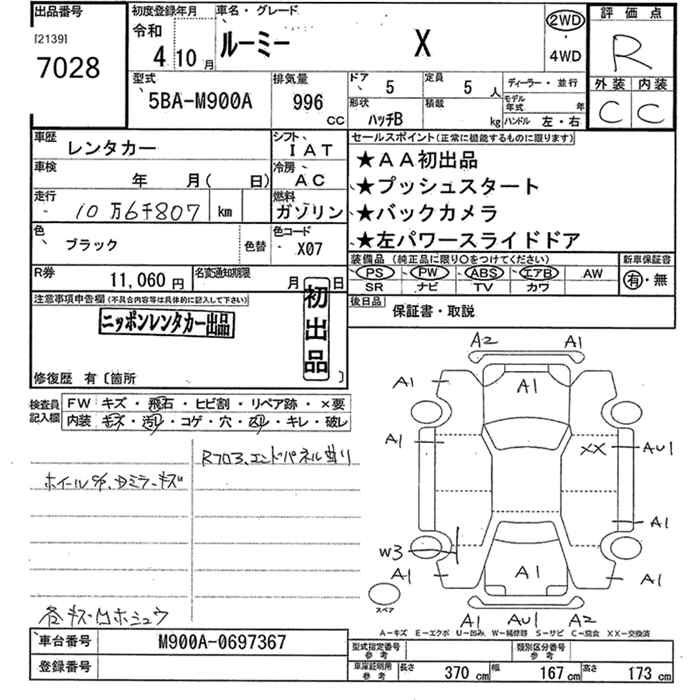 出品番号
[2139]
7028
初度登録年月
令和
4
10月
車名・グレード
ルーミー X
2WD
・
4WD
評価点
R
外装 内装
C C
型式
5BA-M900A
排気量
996
cc
ドア
5
形状
ハッチB
定員
5 人
積載
kg
ディーラー・並行
モデル年式 年
ハンドル 左・右
車歴
レンタカー
シフト
IAT
車検
年 月( 日)
冷房
AC
走行
10万6千807 km
燃料
ガソリン
色
ブラック
色替
色コード
X07
R券
11,060 円
名変通知期限
月 日
セールスポイント(正常に機能するものに限ります)
★AA初出品
★プッシュスタート
★バックカメラ
★左パワースライドドア
装備品(純正品に限り○をつけてください)
PS PW ABS エアB AW
SR ナビ TV カワ
新車保証書
有・無
後日品
保証書・取説
注意事項申告欄(不具合内容等は具体的に記入して下さい)
ニッポンレンタカー出品
初出品
修復歴 有〔箇所 〕
検査員記入欄
FW キズ・飛石・ヒビ割・リペア跡・×要
内装 キズ・汚レ・コゲ・穴・凹・キレ・破レ
Rフロア、エンドパネル曲り
ホイールキズ、ミラーキズ
各キズ凹ホシュウ
A2 A1
A1 A1 A1
A1 XX AU1
W3 A1
A1 A1 A1
スペア
A1 AU1 A2
A-キズ E-エクボ U-凹み W-補修跡 S-サビ C-腐食 XX-交換済
車台番号
M900A-0697367
登録番号
型式指定番号
参考
類別区分番号
参考
車庫証明用
参考
長さ 370 cm
幅 167 cm
高さ 173 cm